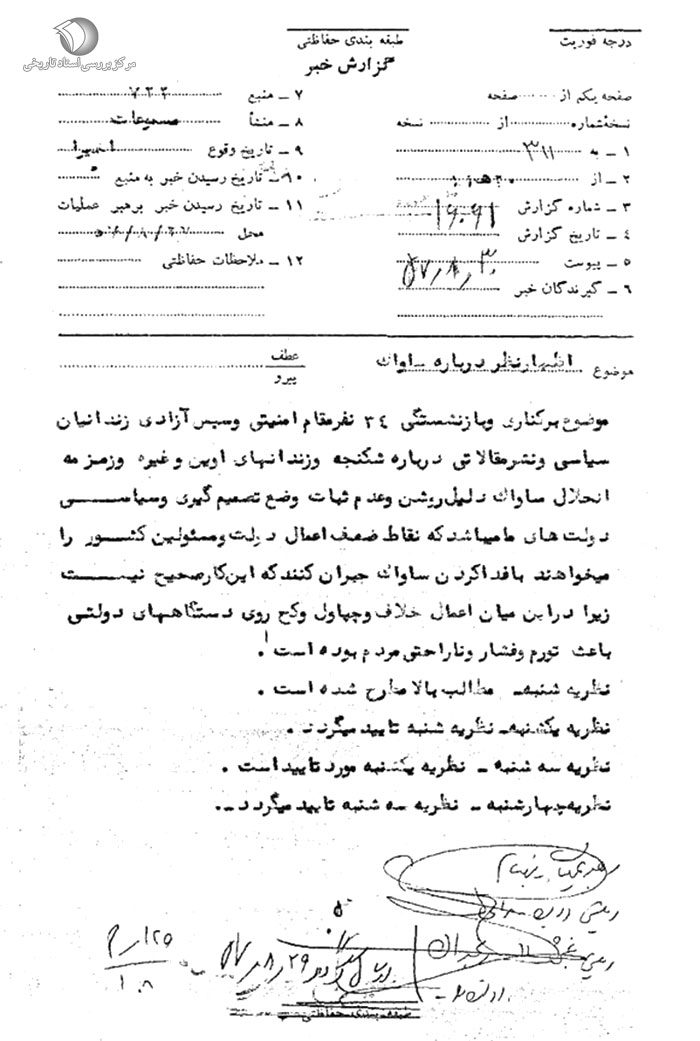 مرکز بررسی اسناد تاریخی
درجه فوریت
طبقه بندی حفاظتی
گزارش خبر
صفحه یکم از ........ صفحه
نسخهٔ شماره ........ از ........ نسخه
۱ ـ به ۳۱۱
۲ ـ از
۳ ـ شماره گزارش
۴ ـ تاریخ گزارش
۵ ـ پیوست ۵۷٫۸٫۳۰
۶ ـ گیرندگان خبر
۷ ـ منبع
۸ ـ منشأ مسموعات
۹ ـ تاریخ وقوع اخیرا
۱۰ ـ تاریخ رسیدن خبر به منبع
۱۱ ـ تاریخ رسیدن خبر برهبر عملیات
محل
۱۲ ـ ملاحظات حفاظتی
موضوع اظهارنظر درباره ساواک
عطف
پیرو
موضوع برکناری وبازنشستگی ۳۴ نفرمقام امنیتی وسپس آزادی زندانیان
سیاسی ونشرمقالاتی درباره شکنجه وزندانهای اوین وغیره وزمزمه
انحلال ساواک دلیل روشن وعدم ثبات وضع تصمیم گیری وسیاسی
دولت های مامیباشدکه نقاط ضعف اعمال دولت ومسئولین کشور را
میخواهند بافداکردن ساواک جبران کنندکه این کارصحیح نیست
زیرا دراین میان اعمال خلاف وچپاول وکج روی دستگاههای دولتی
باعث تورم وفشار وناراحتی مردم بوده است .
نظریه شنبه ـ مطالب بالا مطرح شده است .
نظریه یکشنبه ـ نظریه شنبه تایید میگردد .
نظریه سه شنبه ـ نظریه یکشنبه مورد تایید است .
نظریه چهارشنبه ـ نظریه سه شنبه تایید میگردد ـ.
۵۷٫۸٫۲۹
طبقه بندی حفاظتی